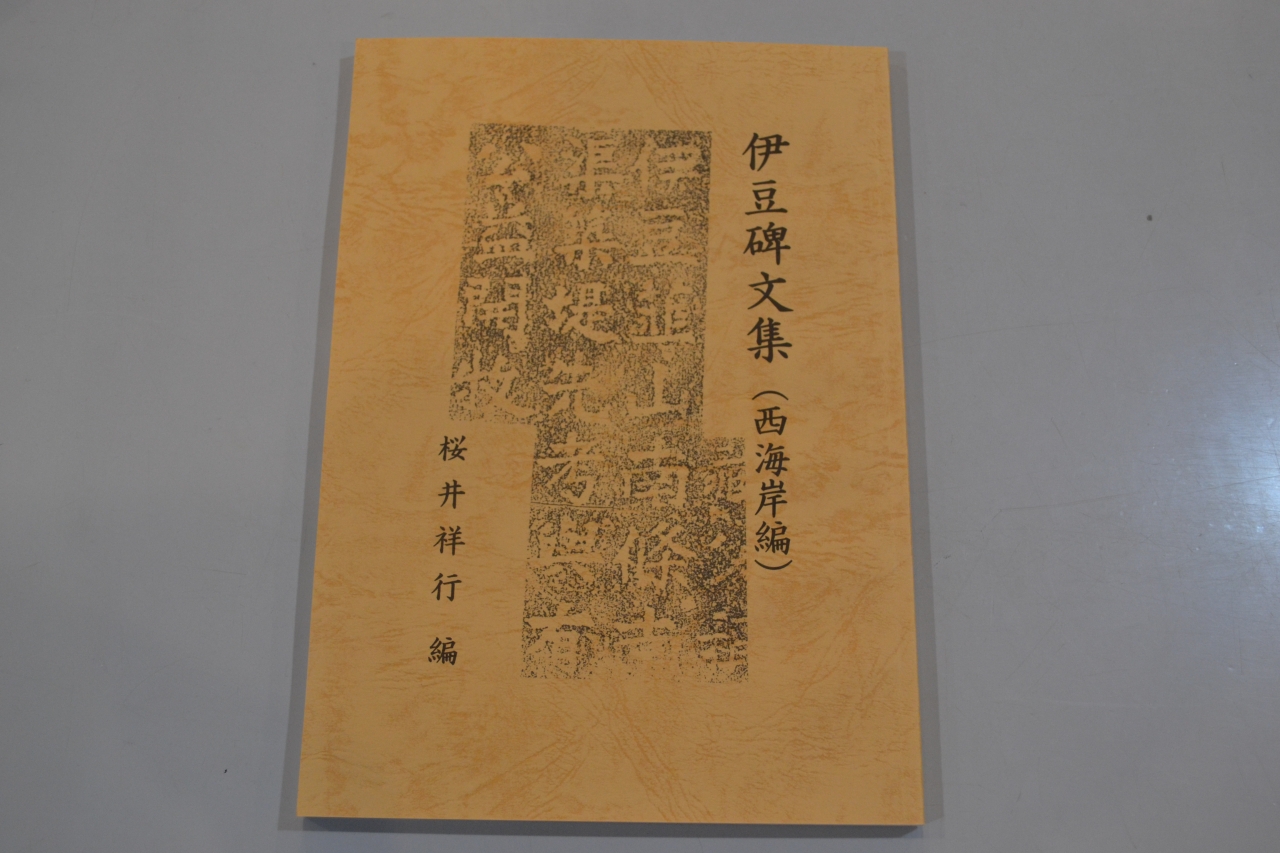 伊豆碑文集（西海岸編）
伊豆韮山南條
渠築堤先考與有
公益開
桜井祥行 編